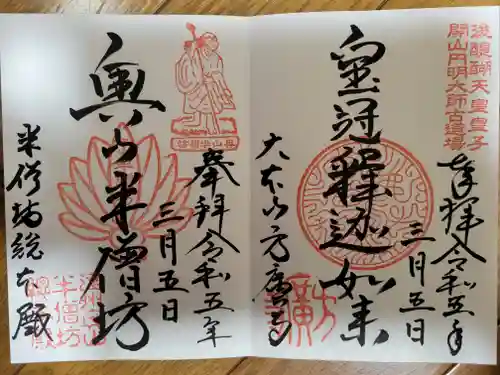 後醍醐天皇皇子
開山円明大師古道場
奉拝令和五年
三月五日
宝冠釋迦如来
大本山方広寺
奉拝令和五年
三月五日
奥山半僧坊
半僧坊総本殿
奥山半僧坊